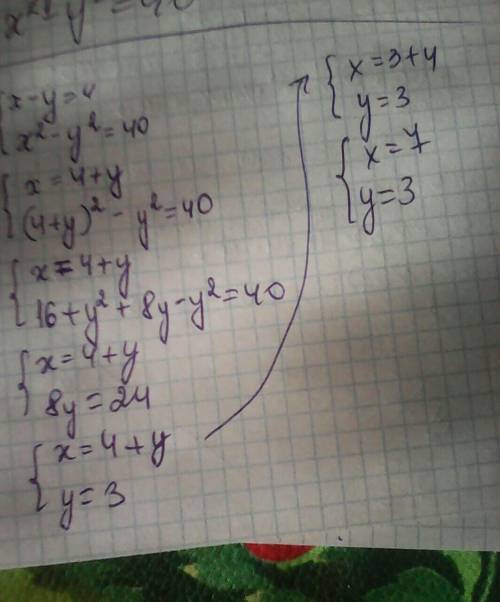 x - y = 4
x² - y² = 40
x = 4 + y
(4+y)² - y² = 40
x = 4 + y
16 + y² + 8y - y² = 40
x = 4 + y
8y = 24
x = 4 + y
y = 3
x = 3 + 4
y = 3
x = 7
y = 3